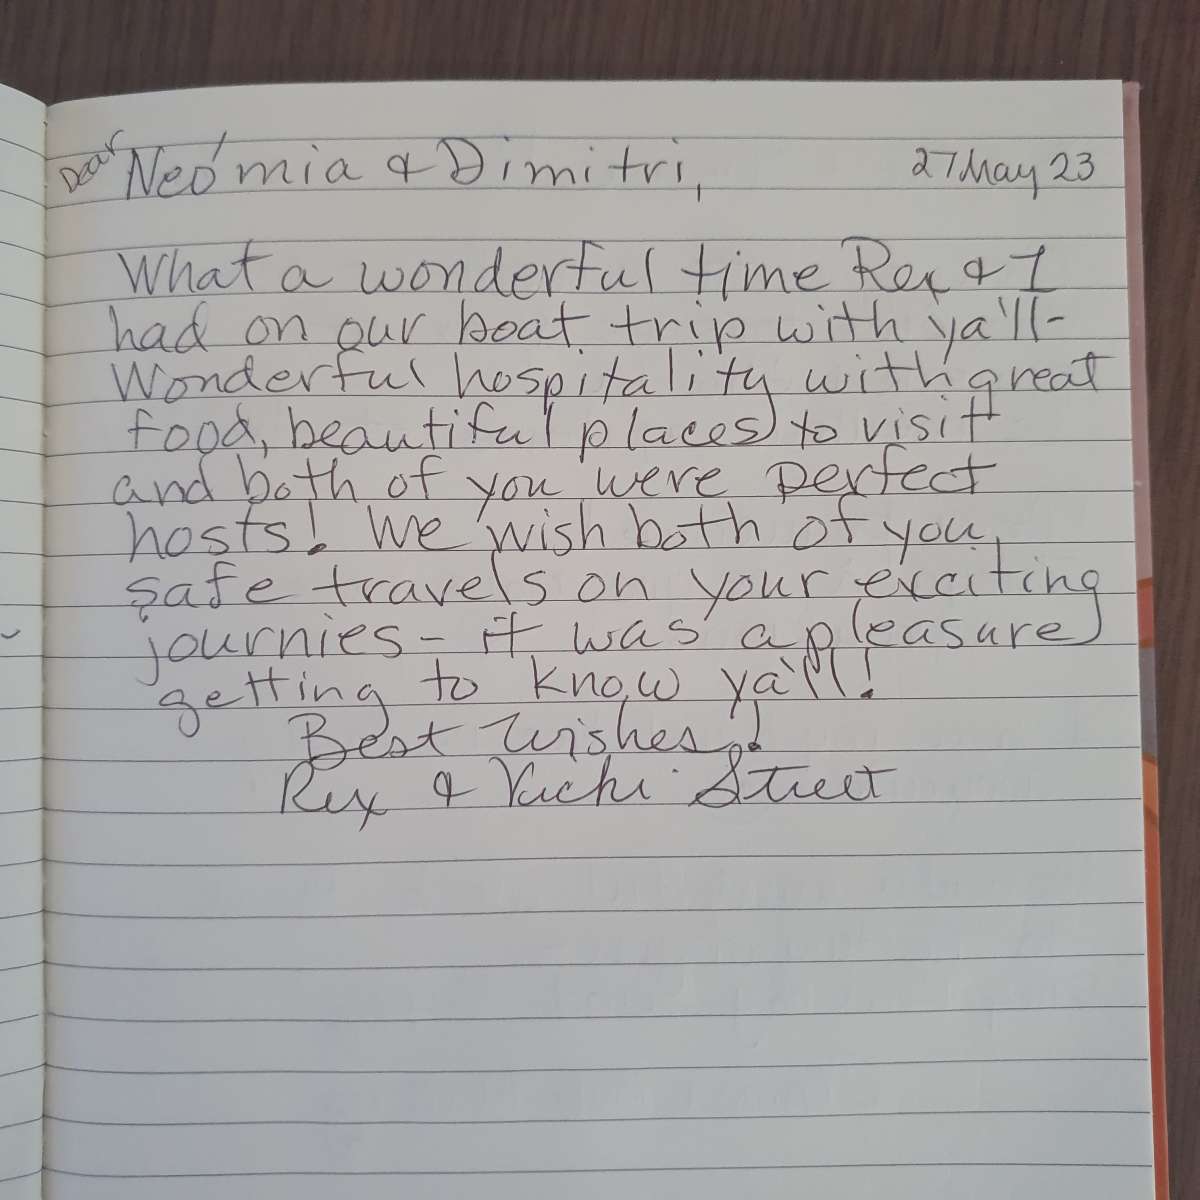 Dear Neómia & Dimitri, 27 May 23
What a wonderful time Rex & I
had on our boat trip with ya'll-
Wonderful hospitality with great
food, beautiful places to visit
and both of you were perfect
hosts! We wish both of you
safe travels on your exciting
journies - it was a pleasure
getting to know ya'll!
Best Wishes!
Rex & Street